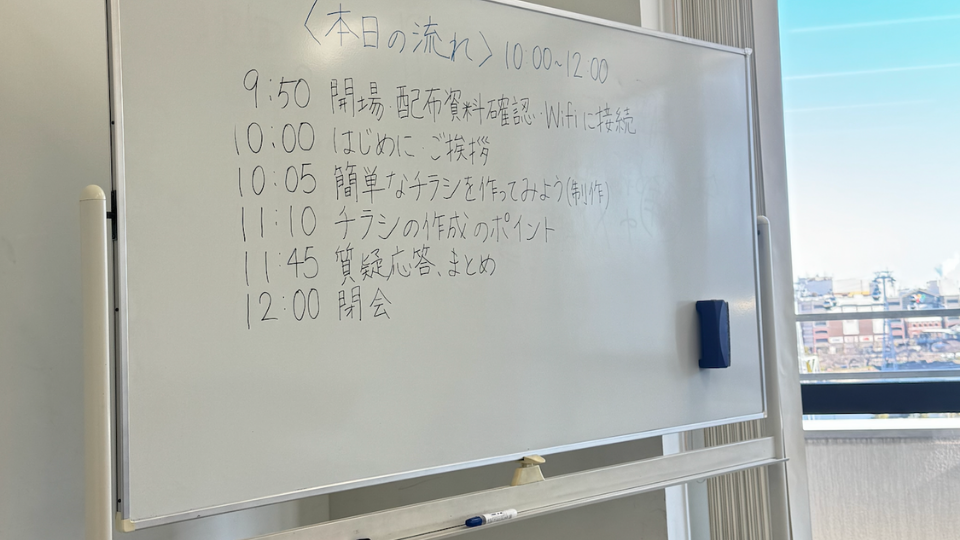 〈本日の流れ〉10:00~12:00
9:50 開場・配布資料確認・Wifiに接続
10:00 はじめに・ご挨拶
10:05 簡単なチラシを作ってみよう(制作)
11:10 チラシの作成のポイント
11:45 質疑応答、まとめ
12:00 閉会